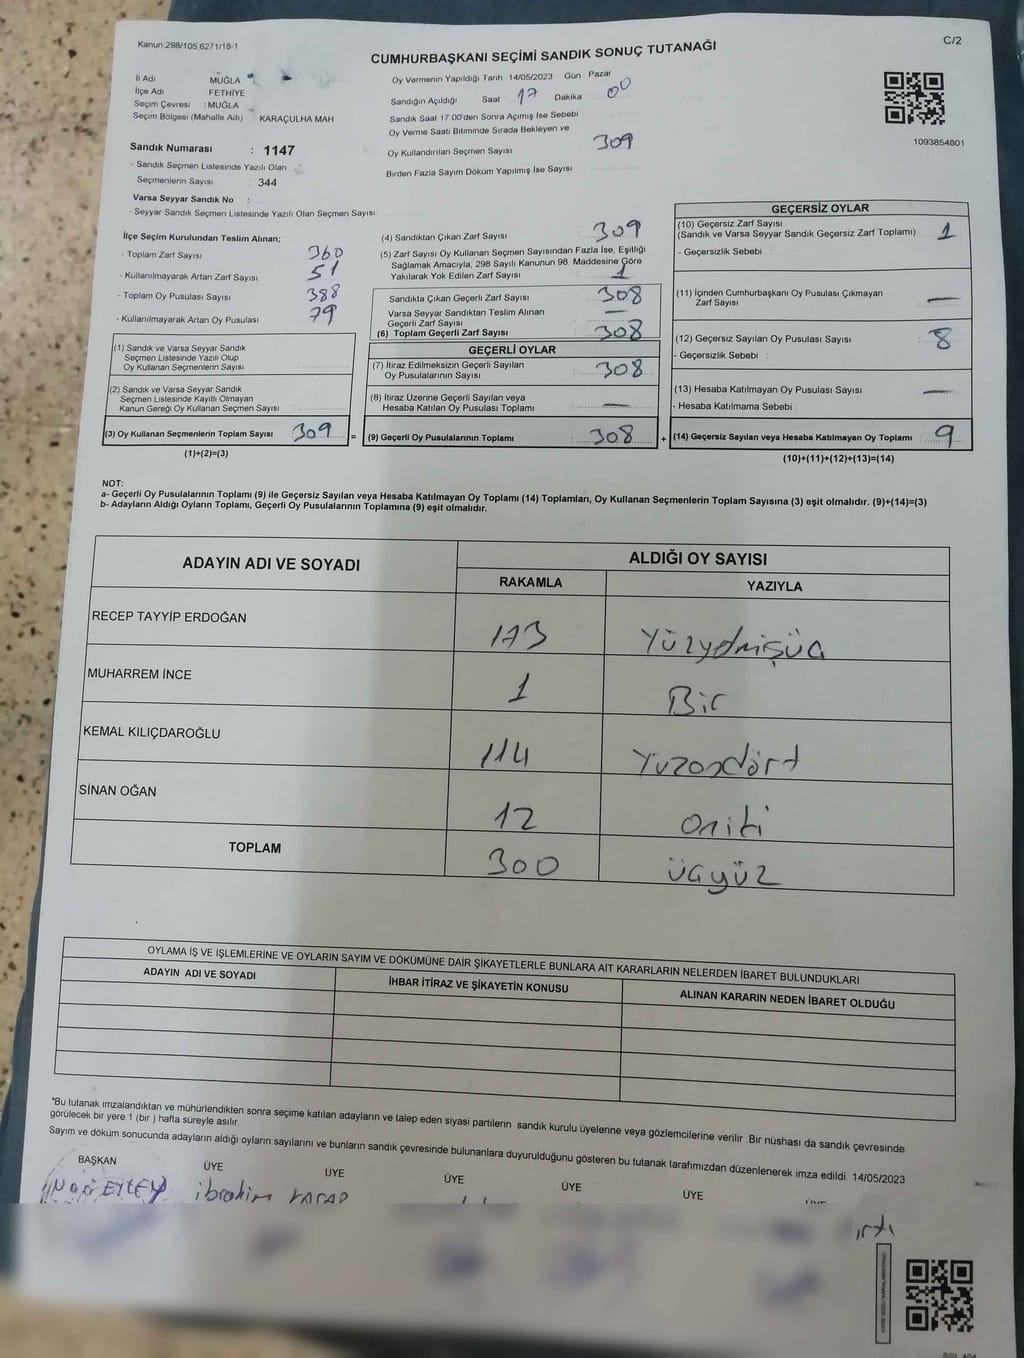 Kanun;298/105,6271/18-1
C/2
CUMHURBAŞKANI SEÇİMİ SANDIK SONUÇ TUTANAĞI
İl Adı MUĞLA
İlçe Adı FETHİYE
Seçim Çevresi : MUĞLA
Seçim Bölgesi (Mahalle Adı) KARAÇULHA MAH
Oy Vermenin Yapıldığı Tarih 14/05/2023 Gün Pazar
Sandığın Açıldığı Saat 17 Dakika 00
Sandık Saat 17.00'den Sonra Açımış İse Sebebi
Oy Verme Saati Bitiminde Sırada Bekleyen ve
Oy Kullandırılan Seçmen Sayısı 309
Birden Fazla Sayım Döküm Yapılmış İse Sayısı
1093854801
Sandık Numarası : 1147
- Sandık Seçmen Listesinde Yazılı Olan
Seçmenlerin Sayısı : 344
Varsa Seyyar Sandık No :
- Seyyar Sandık Seçmen Listesinde Yazılı Olan Seçmen Sayısı
İlçe Seçim Kurulundan Teslim Alınan;
- Toplam Zarf Sayısı 360
- Kullanılmayarak Artan Zarf Sayısı 51
- Toplam Oy Pusulası Sayısı 388
- Kullanılmayarak Artan Oy Pusulası 79
(1) Sandık ve Varsa Seyyar Sandık
Seçmen Listesinde Yazılı Olup
Oy Kullanan Seçmenlerin Sayısı
(2) Sandık ve Varsa Seyyar Sandık
Seçmen Listesinde Kayıtlı Olmayan
Kanun Gereği Oy Kullanan Seçmen Sayısı
(3) Oy Kullanan Seçmenlerin Toplam Sayısı 309 =
(1)+(2)=(3)
(4) Sandıktan Çıkan Zarf Sayısı 309
(5) Zarf Sayısı Oy Kullanan Seçmen Sayısından Fazla İse, Eşitliği
Sağlamak Amacıyla, 298 Sayılı Kanunun 98. Maddesine Göre
Yakılarak Yok Edilen Zarf Sayısı 1
Sandıkta Çıkan Geçerli Zarf Sayısı 308
Varsa Seyyar Sandıktan Teslim Alınan
Geçerli Zarf Sayısı —
(6) Toplam Geçerli Zarf Sayısı 308
GEÇERLİ OYLAR
(7) İtiraz Edilmeksizin Geçerli Sayılan
Oy Pusulalarının Sayısı 308
(8) İtiraz Üzerine Geçerli Sayılan veya
Hesaba Katılan Oy Pusulası Toplamı —
(9) Geçerli Oy Pusulalarının Toplamı : 308 +
GEÇERSİZ OYLAR
(10) Geçersiz Zarf Sayısı
(Sandık ve Varsa Seyyar Sandık Geçersiz Zarf Toplamı) 1
- Geçersizlik Sebebi :
(11) İçinden Cumhurbaşkanı Oy Pusulası Çıkmayan
Zarf Sayısı —
(12) Geçersiz Sayılan Oy Pusulası Sayısı 8
- Geçersizlik Sebebi :
(13) Hesaba Katılmayan Oy Pusulası Sayısı —
- Hesaba Katılmama Sebebi
(14) Geçersiz Sayılan veya Hesaba Katılmayan Oy Toplamı : 9
(10)+(11)+(12)+(13)=(14)
NOT:
a- Geçerli Oy Pusulalarının Toplamı (9) ile Geçersiz Sayılan veya Hesaba Katılmayan Oy Toplamı (14) Toplamları, Oy Kullanan Seçmenlerin Toplam Sayısına (3) eşit olmalıdır. (9)+(14)=(3)
b- Adayların Aldığı Oyların Toplamı, Geçerli Oy Pusulalarının Toplamına (9) eşit olmalıdır.
ADAYIN ADI VE SOYADI
ALDIĞI OY SAYISI
RAKAMLA YAZIYLA
RECEP TAYYİP ERDOĞAN 173 Yüzyetmişüç
MUHARREM İNCE 1 Bir
KEMAL KILIÇDAROĞLU 114 Yuzondört
SİNAN OĞAN 12 oniki
TOPLAM 300 üçyüz
OYLAMA İŞ VE İŞLEMLERİNE VE OYLARIN SAYIM VE DÖKÜMÜNE DAİR ŞİKAYETLERLE BUNLARA AİT KARARLARIN NELERDEN İBARET BULUNDUKLARI
ADAYIN ADI VE SOYADI İHBAR İTİRAZ VE ŞİKAYETİN KONUSU ALINAN KARARIN NEDEN İBARET OLDUĞU
*Bu tutanak imzalandıktan ve mühürlendikten sonra seçime katılan adayların ve talep eden siyasi partilerin sandık kurulu üyelerine veya gözlemcilerine verilir .Bir nüshası da sandık çevresinde
görülecek bir yere 1 (bir ) hafta süreyle asılır.
Sayım ve döküm sonucunda adayların aldığı oyların sayılarını ve bunların sandık çevresinde bulunanlara duyurulduğunu gösteren bu tutanak tarafımızdan düzenlenerek imza edildi. 14/05/2023
BAŞKAN ÜYE ÜYE ÜYE ÜYE ÜYE
ibrahim